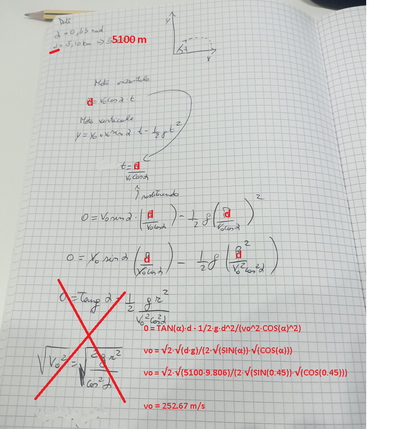 Dati
α = 0,45 rad
d = 5,10 km => 5100 m
y
α
Moto orizzontale
d = v₀cosα t
Moto verticale
y = y₀ + v₀ sinα t - 1/2 g t²
t = d / v₀cosα
0 = v₀ sinα · (d / v₀cosα) - 1/2 g (d / v₀cosα)²
0 = v₀ sinα (d / v₀cosα) - 1/2 g (d² / v₀²cos²α)
0 = Tang α - 1/2 g r² / v₀²cos²α
0 = TAN(α)·d - 1/2·g·d^2/(vo^2·COS(α)^2)
vo = √2·√(d·g)/(2·√(SIN(α))·√(COS(α)))
vo = √2·√(5100·9.806)/(2·√(SIN(0.45))·√(COS(0.45)))
vo = 252.67 m/s